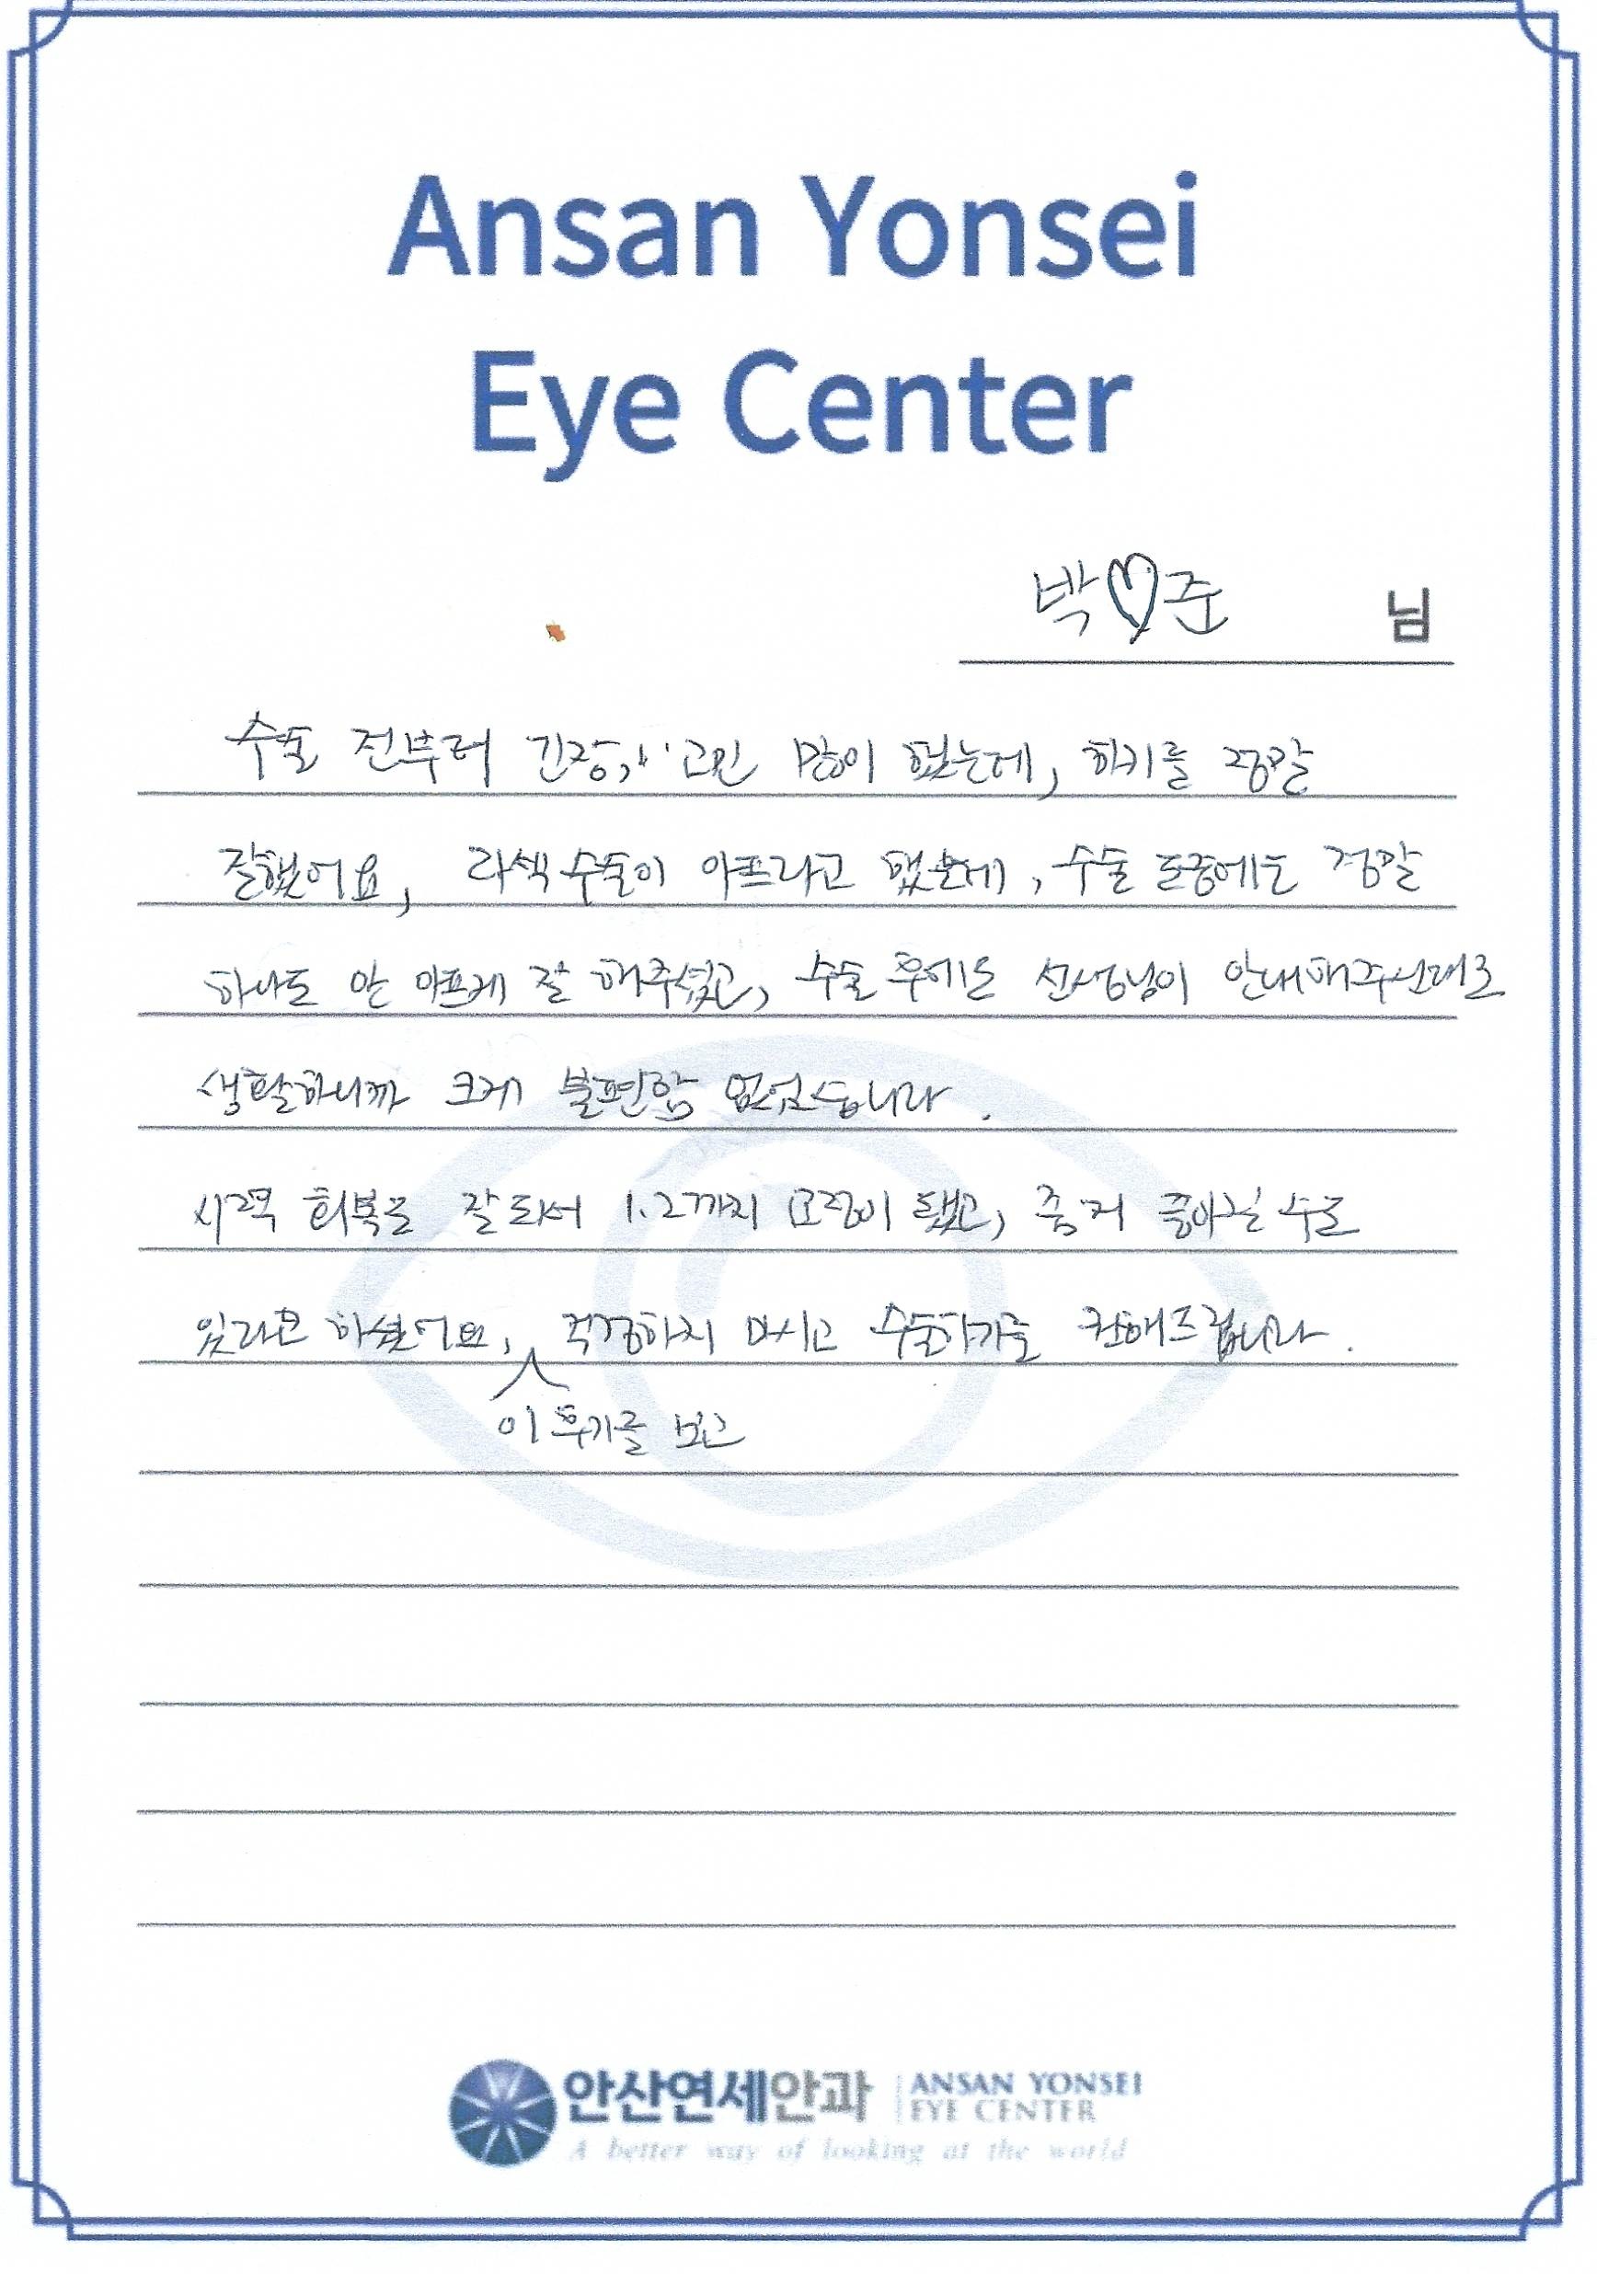 Ansan Yonsei
Eye Center
박♡준 님
수술 전부터 긴장, 고민 많이 했는데, 하기를 정말
잘했어요, 라섹수술이 아프다고 했는데, 수술 도중에는 정말
하나도 안 아프게 잘 해주셨고, 수술 후에는 선생님이 안내해주신대로
생활하니까 크게 불편함 없었습니다.
시력 회복도 잘 되서 1.2까지 교정이 됐고, 좀 더 좋아질 수도
있다고 하셨어요, 걱정하지 마시고 수술하기를 권해드립니다.
이 후기를 보고
안산연세안과 ANSAN YONSEI
EYE CENTER
A better way of looking at the world